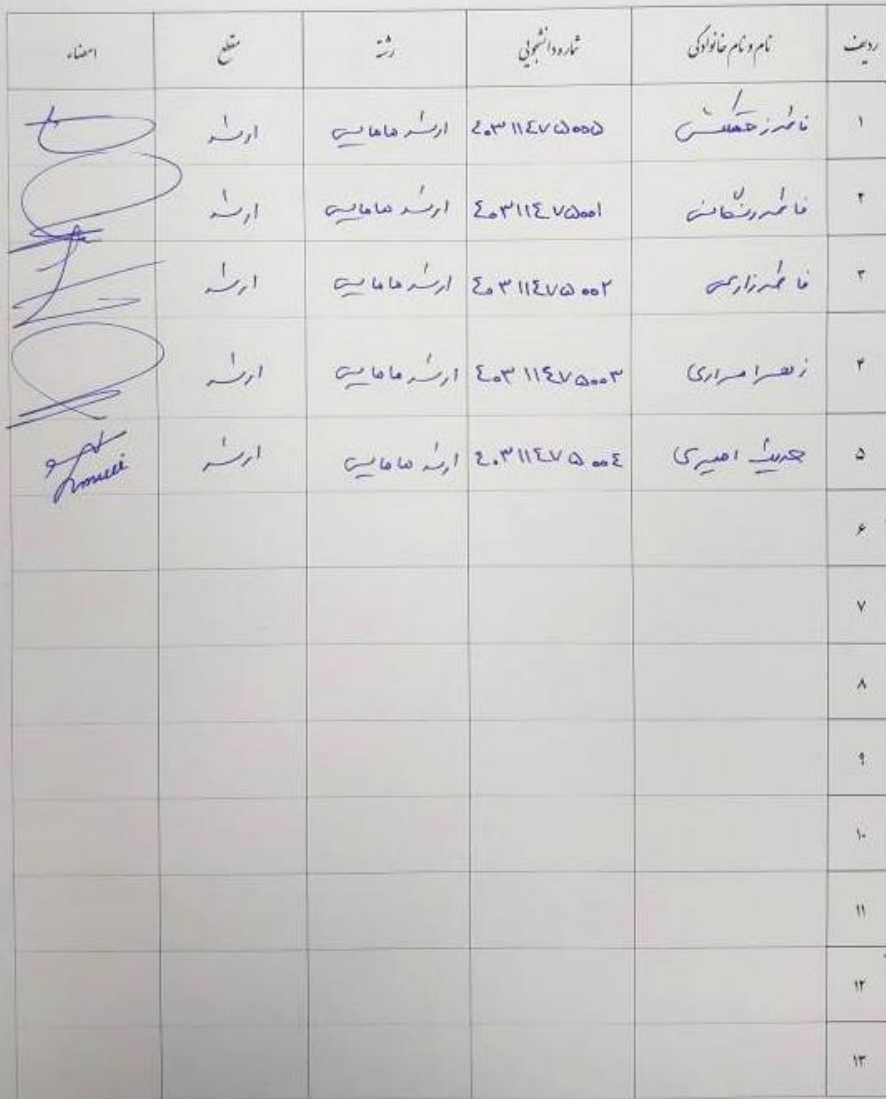 ردیف نام و نام خانوادگی شماره دانشجویی رشته مقطع امضاء
۱ فاطمه ٤۰۳۱۱٤۷۵۰۰۵ ارشد مامایی ارشد
۲ فاطمه ٤۰۳۱۱٤۷۵۰۰۱ ارشد مامایی ارشد
۳ فاطمه زارعی ٤۰۳۱۱٤۷۵۰۰۲ ارشد مامایی ارشد
۴ زهرا مرادی ٤۰۳۱۱٤۷۵۰۰۳ ارشد مامایی ارشد
۵ حدیث امیری ٤۰۳۱۱٤۷۵۰۰٤ ارشد مامایی ارشد
۶
۷
۸
۹
۱۰
۱۱
۱۲
۱۳